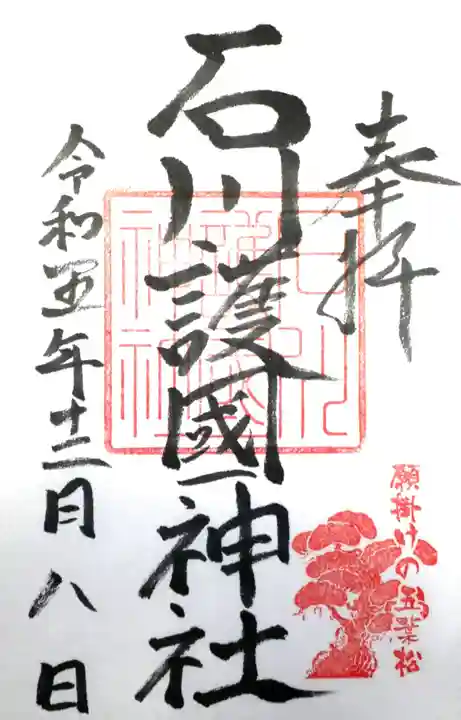 奉拝
石川護國神社
石川護國神社
令和五年十二月八日
願掛けの五葉松